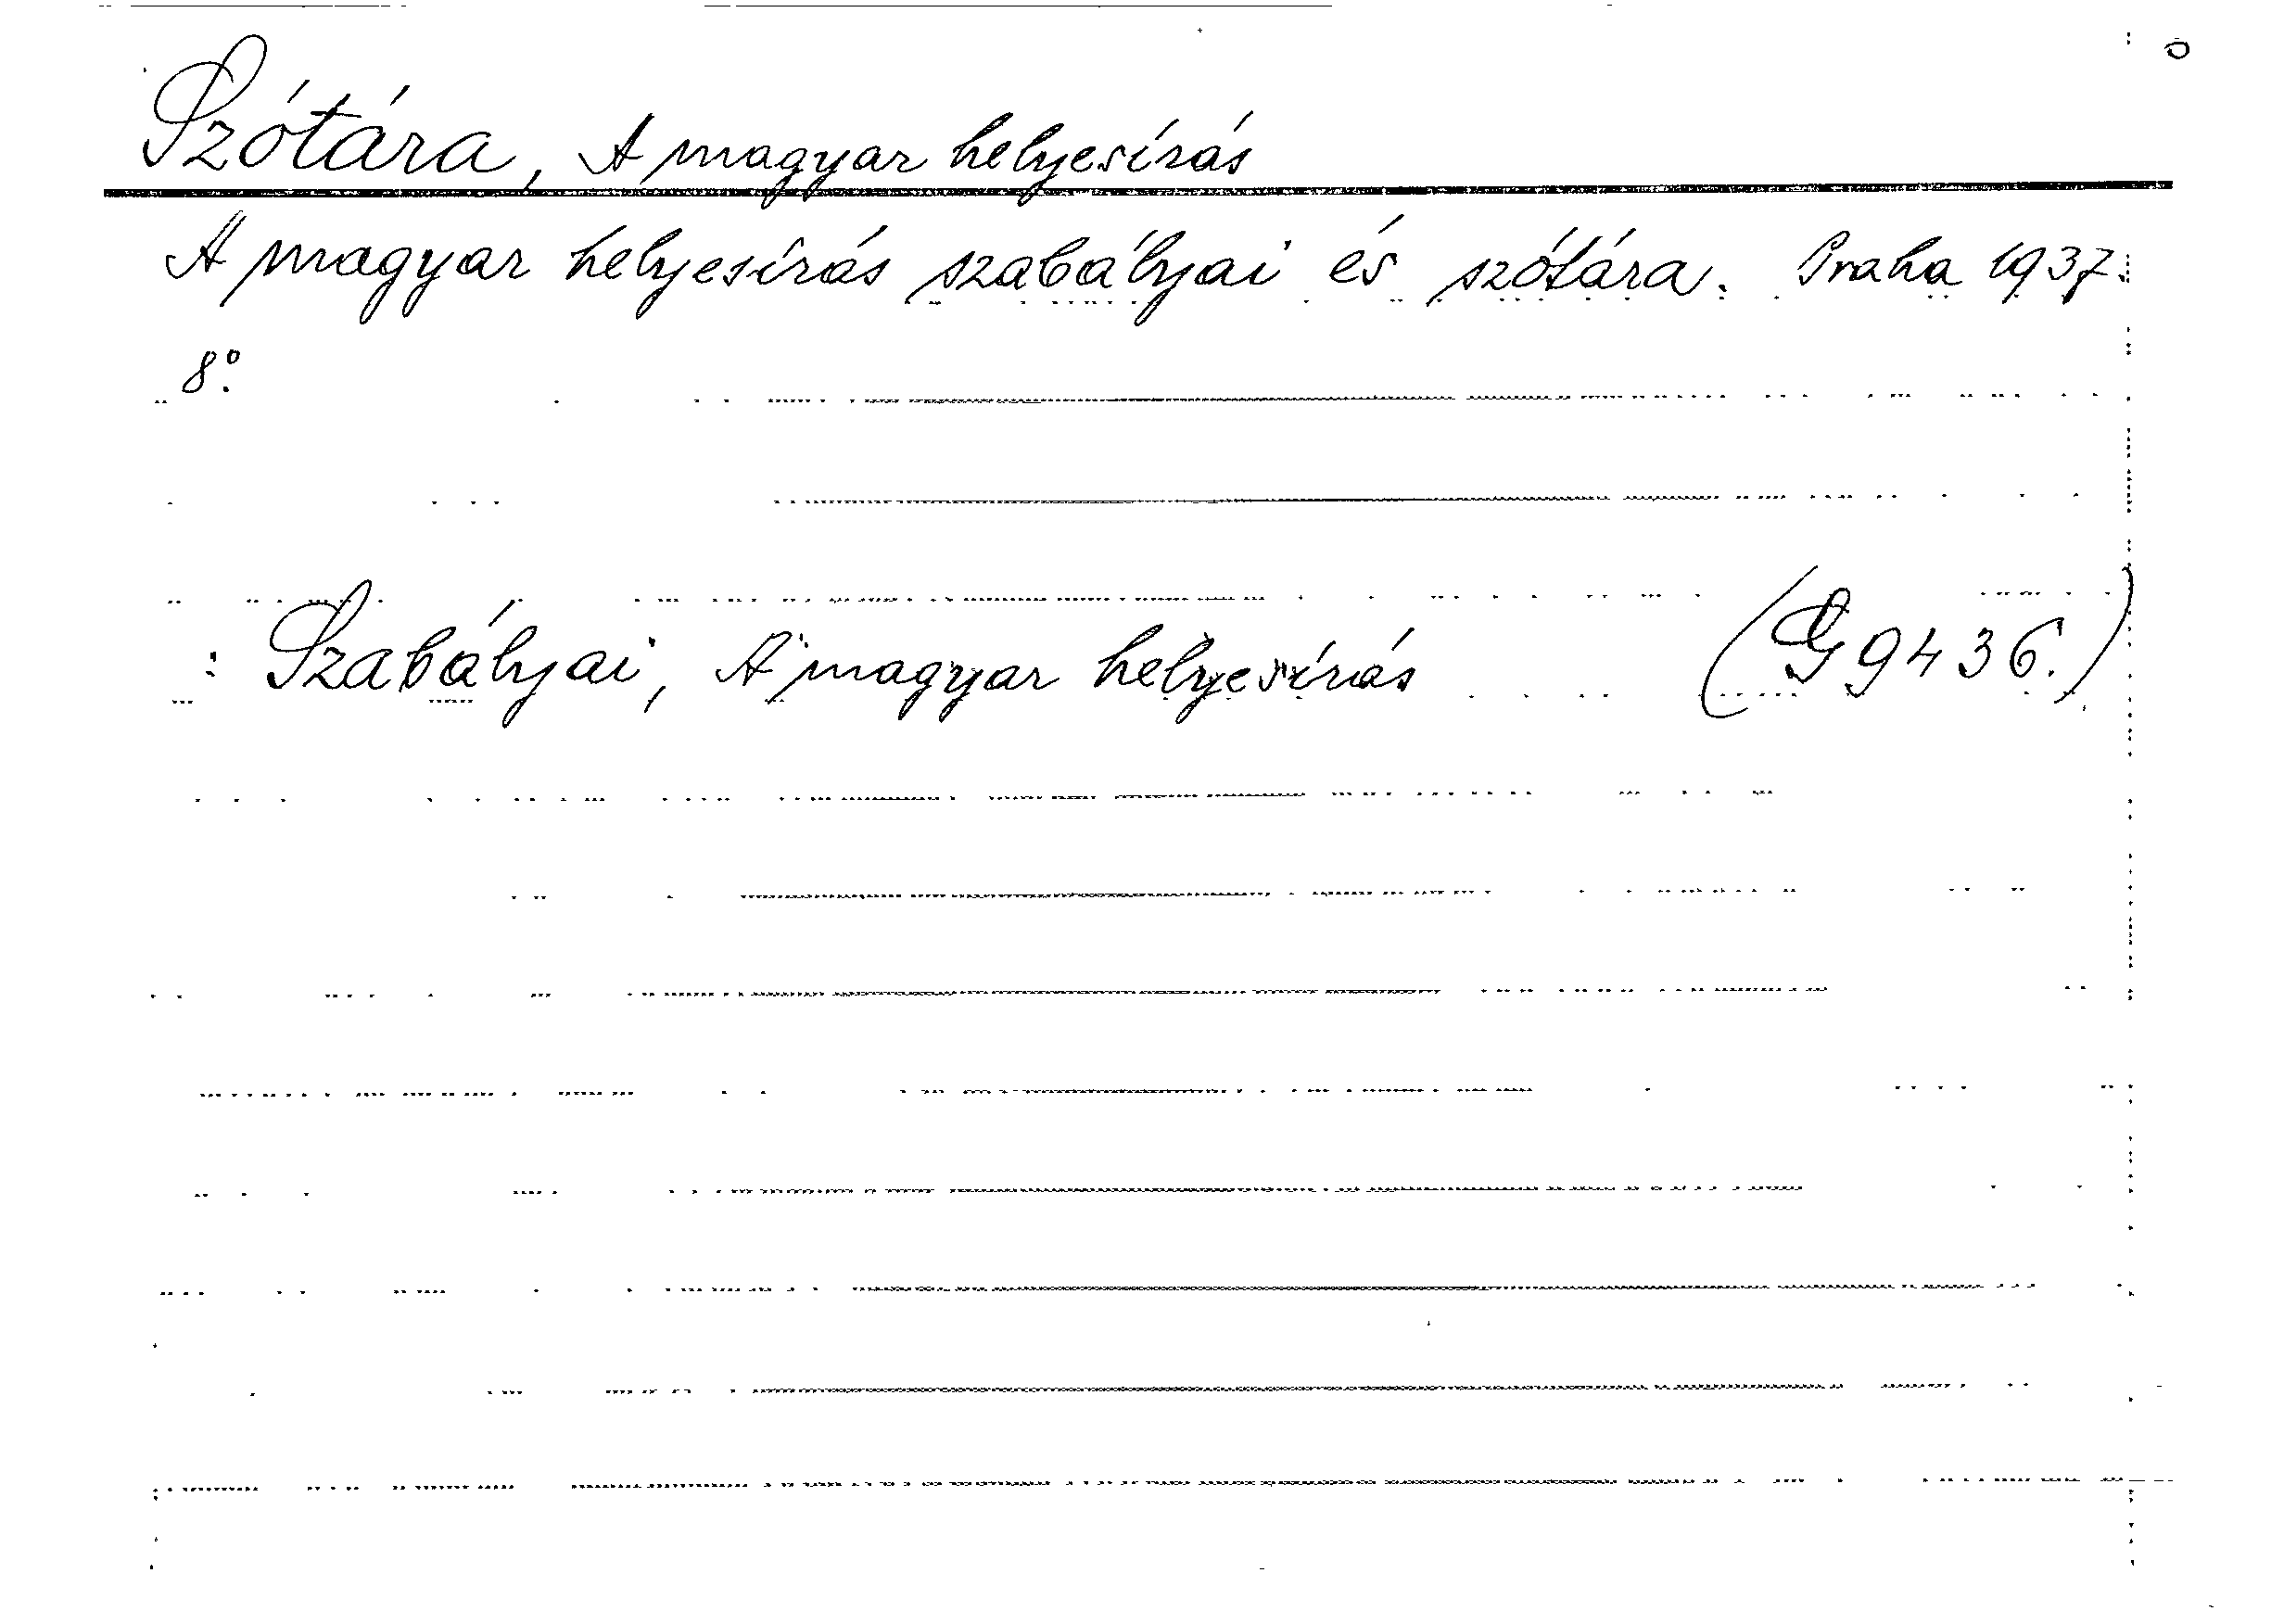 Szótára, A magyar helyesírás
A magyar helyesírás szabályai és szótára. Praha 1937.
8°.
: Szabályai, A magyar helyesírás (G 9436.)